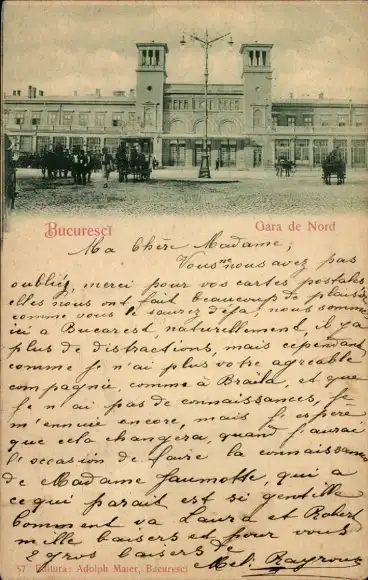 Bucuresci
Gara de Nord
Ma Chère Madame,
Vous ne nous avez pas
oubliés, merci pour vos cartes postales
elles nous ont fait beaucoup de plaisir
comme vous le saurez déjà, nous sommes
ici a Bucarest, naturellement, il y a
plus de distractions, mais cependant
comme je n'ai plus votre agréable
compagnie, comme à Braïla, et que
je n'ai pas de connaissances, je
m'ennuie encore, mais j'espère
que cela changera, quand j'aurai
l'occasion de faire la connaissance
de Madame Jaumotte, qui a
ce qui parait est si gentille
Comment va Laura et Robert
mille baisers et pour vous
2 gros baisers de
57 Editura: Adolph Maier, Bucuresci